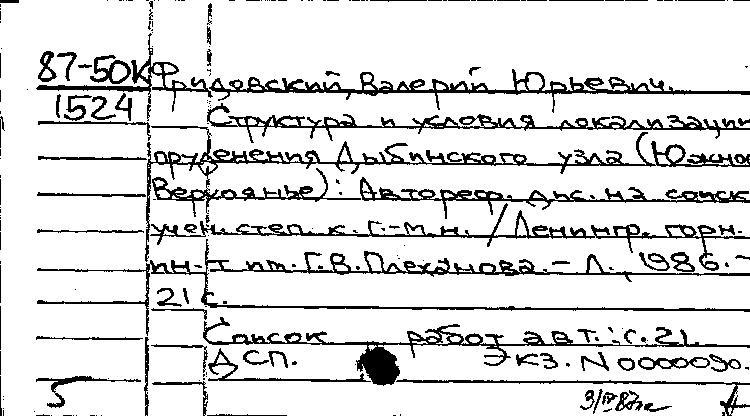 87-50К Фридовский, Валерий Юрьевич.
1524 Структура и условия локализации
оруденения Дыбинского узла (Южное
Верхоянье): Автореф. дис. на соиск.
учен. степ. к. г.-м. н. / Ленингр. горн.
ин-т им. Г. В. Плеханова. - Л., 1986. -
21 с.
Список работ авт.: с. 21.
ДСП. Экз. N 0000090.
5 3/IV 87